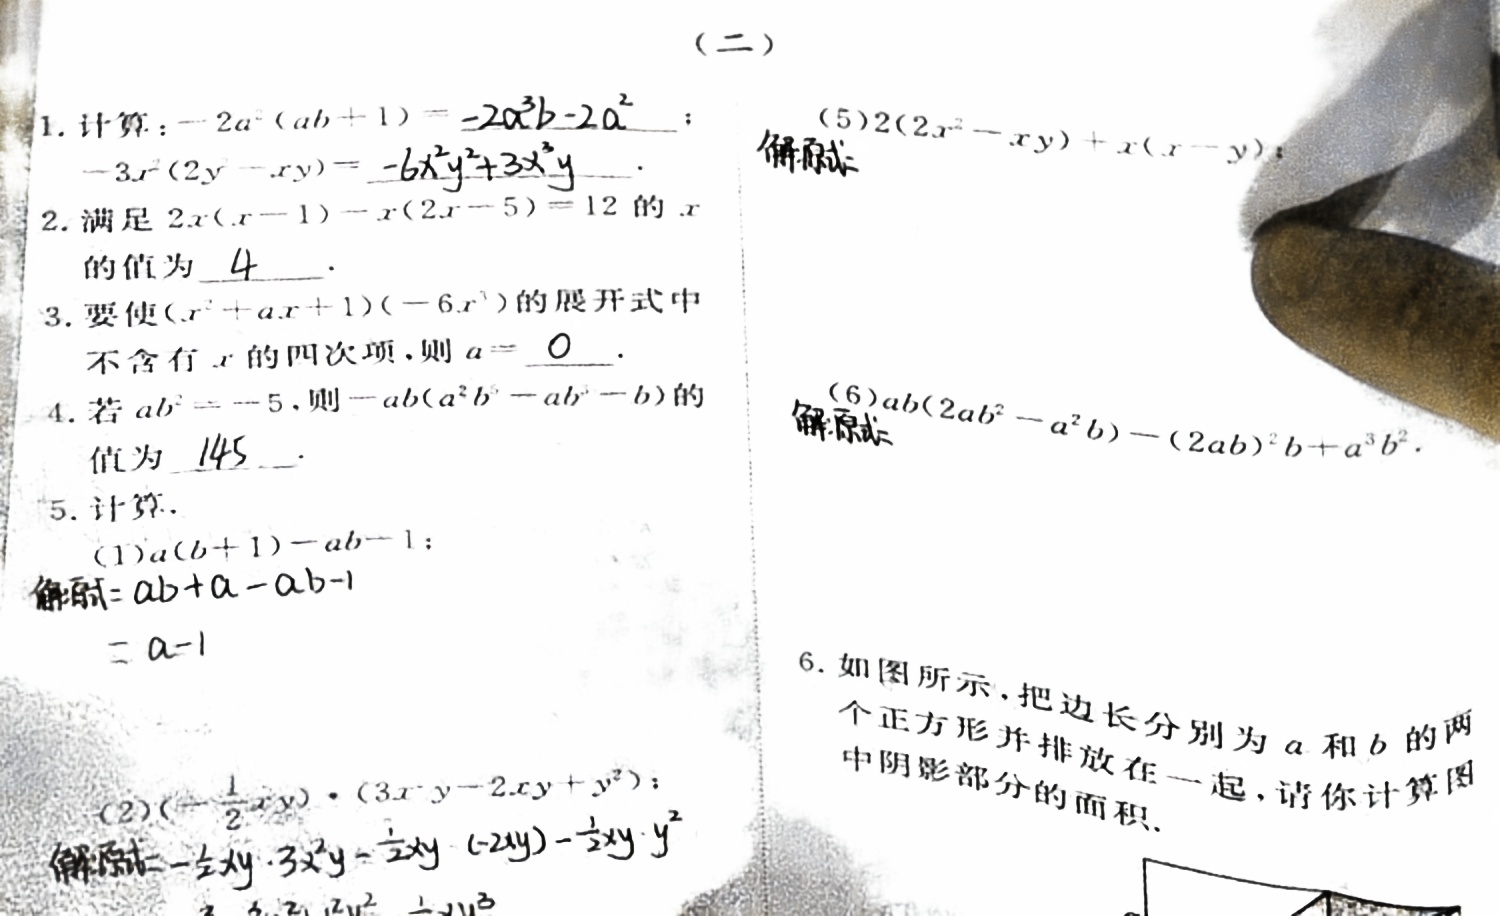 （二）
1. 计算：－2a²（ab＋1）＝ -2a³b-2a² ；
－3x²（2y²－xy）＝ -6x²y²+3x³y .
2. 满足 2x（x－1）－x（2x－5）＝12 的 x
的值为 4 .
3. 要使（x²＋ax＋1）（－6x³）的展开式中
不含有 x 的四次项，则 a＝ 0 .
4. 若 ab²＝－5，则－ab（a²b⁵－ab³－b）的
值为 145 .
5. 计算.
（1）a（b＋1）－ab－1；
解:原式= ab+a-ab-1
= a-1
（2）（－1/2xy）·（3x²y－2xy＋y²）；
解:原式=-1/2xy·3x²y-1/2xy·(-2xy)-1/2xy·y²
（5）2（2x²－xy）＋x（x－y）；
解:原式=
（6）ab（2ab²－a²b）－（2ab）²b＋a³b².
解:原式=
6. 如图所示，把边长分别为 a 和 b 的两
个正方形并排放在一起，请你计算图
中阴影部分的面积.